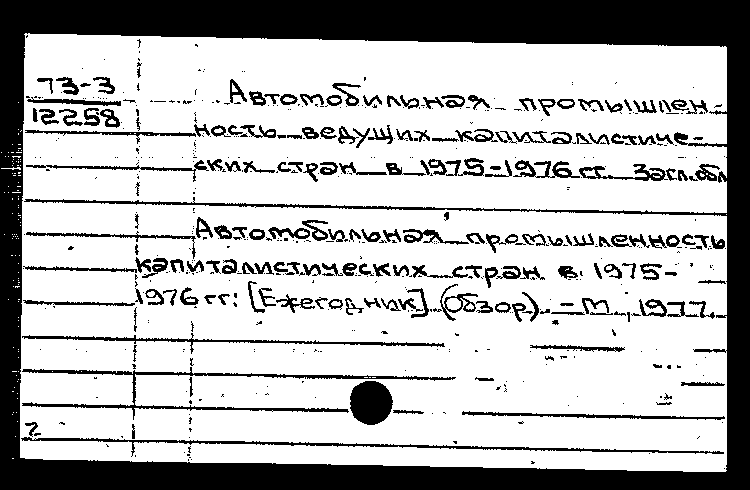 73-3
12258
Автомобильная промышлен-
ность ведущих капиталистиче-
ских стран в 1975-1976 гг. Загл.обл
Автомобильная промышленность
капиталистических стран в 1975-
1976 гг: [Ежегодник] (Обзор). - М., 1977.
2